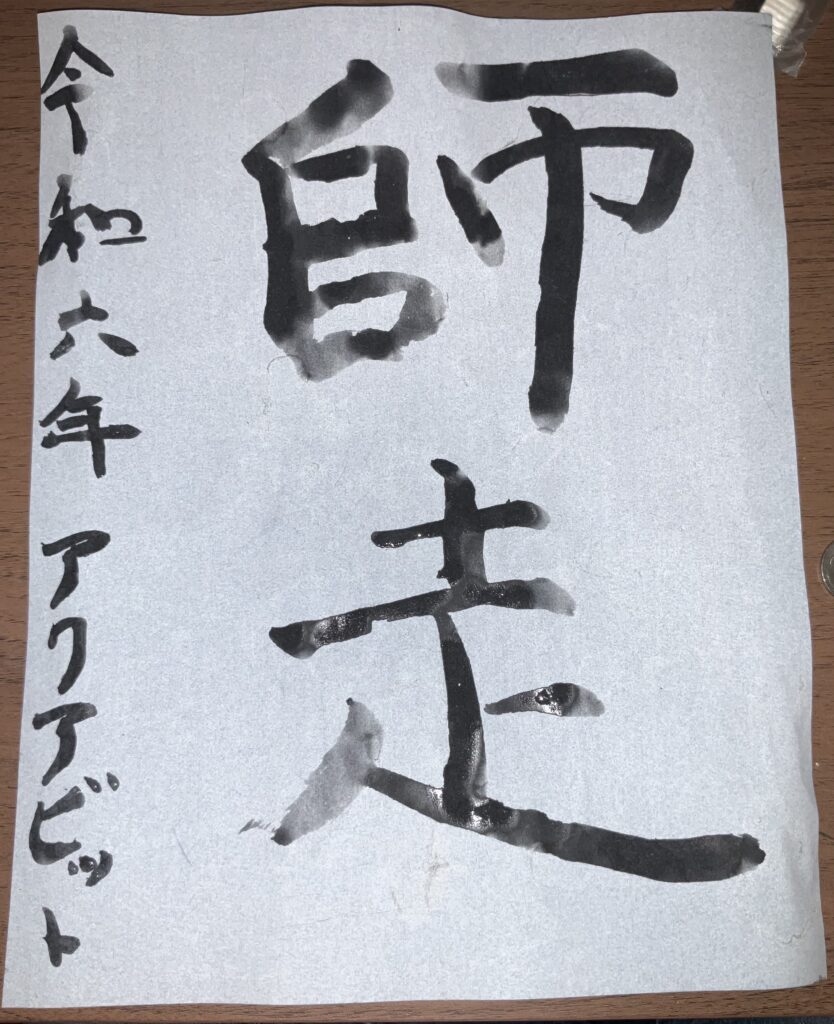 師走
令和六年 アクアビット